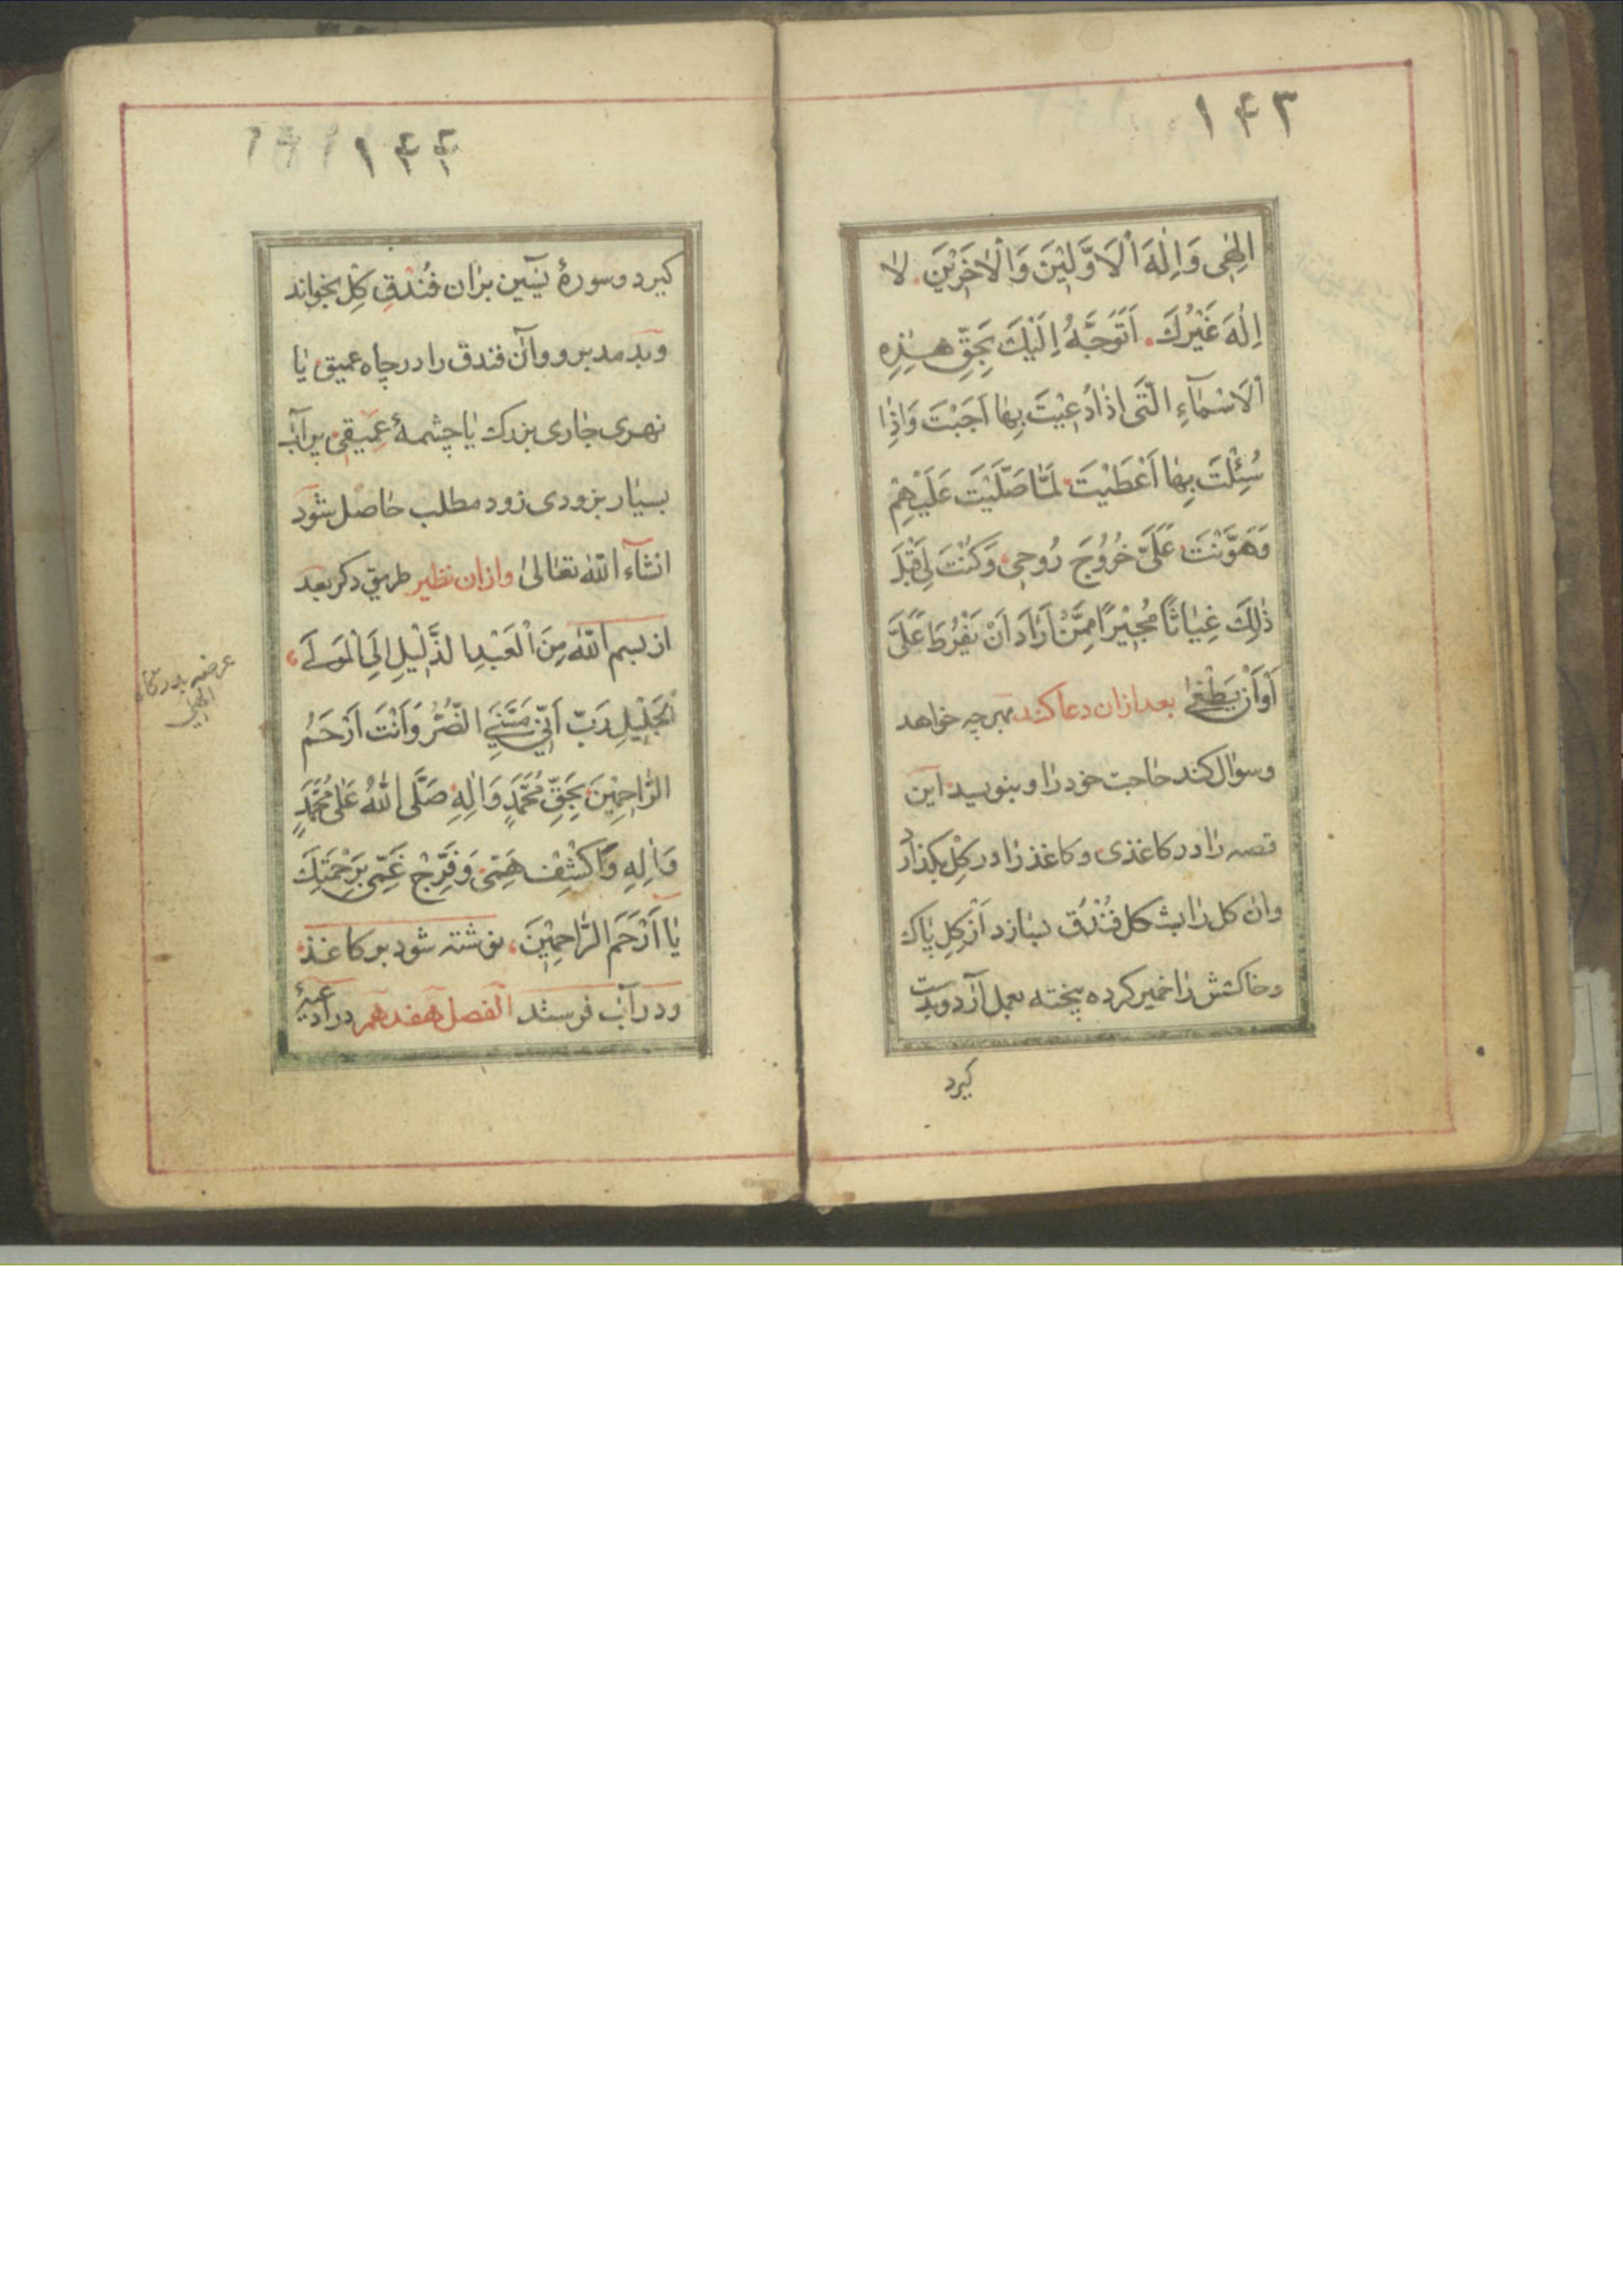 ١٤٣
اِلٰهِى وَاِلٰهَ اْلَاوَّلِيْنَ وَاْلاٰخَرِيْنَ. لٰا
اِلٰهَ غَيْرُكَ. اَتَوَجَّهُ اِلَيْكَ بِحَقِّ هٰذِهِ
اْلَاسْمٰآءِ الَّتٖى اِذٰا دُعِيْتَ بِهٰا اَجَبْتَ وَاِذٰا
سُئِلْتَ بِهٰا اَعْطَيْتَ لَمّٰا صَلَّيْتَ عَلَيْهِمْ
وَهَوَّنْتَ عَلَىَّ خُرُوُجَ رُوحِى وَكُنْتَ لِى قَبْلَ
ذٰلِكَ غِيٰاثًا مُجٖيْرًا مِمَّنْ اَرٰادَ اَنْ يَفْرُطَ عَلَىَّ
اَوْ اَنْ يَطْغٰى بعد ازان دعا كند بهرچه خواهد
وسوٰال كند حٰاجت خود رٰا و بنويسد اين
قصه رٰا در كاغذى و كاغذ رٰا در گِلْ بكذارد
وان كل رٰا بشكل فُنْدُق بسٰازد اَزْ كِلِ پٰاك
وخاكشش رٰا خمير كرده پخته بعمل آرد وبدست
كيرد
١٤٤
كيرد وسورهٔ يٰسٓيٖن برٰان فُنْدُقِ كِلِ بخواند
وبدمد برو وآن فندق را در چاه عميق يٰا
نهرى جٰارى بزرك يٰا چشمهٔ عَمٖيقٖى پر آب
بسيٰار بزودى زود مطلب حٰاصل شود
انشآء اللّٰه تعٰالىٰ وازان نظير طريق دكر بعد
از بسم اللّٰه مِنَ اْلعَبْدِ الذَّلٖيْلِ اِلَى اْلمَوْلَے
اْلجَلٖيْلِ رَبِّ اَنّٖى مَسَّنِىَ الضُّرُّ وَاَنْتَ اَرْحَمُ
الرّٰاحِمٖيْنَ بِحَقِّ مُحَمَّدٍ وَاٰلِهِ صَلَّى اللّٰهُ عَلٰى مُحَمَّدٍ
وَاٰلِهِ وَاكْشِفْ هَمّٖى وَفَرِّجْ غَمّٖى بِرَحْمَتِكَ
يٰا اَرْحَمَ الرّٰاحِمٖيْنَ، نوشته شود بر كاغذ
ودر آب فرستد الفصل هفدهم در ادعيهٔ
عرضه بدركاه
الٰهى